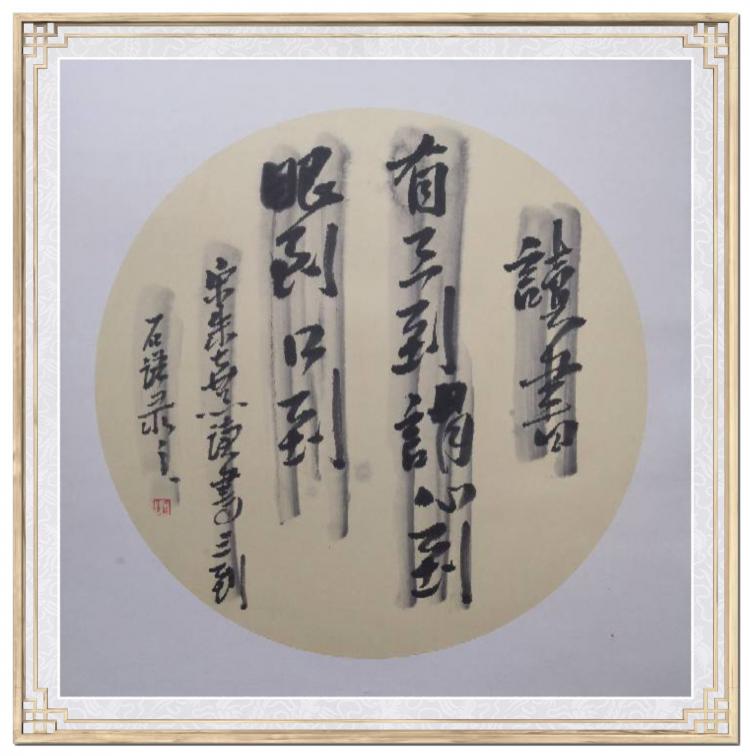 讀書
有三到謂心到
眼到口到
宋朱熹读書三到
石诺录之